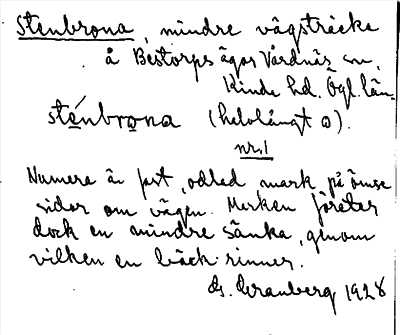 Stenbrona, mindre vägsträcka
å Bestorps ägor Vårdnäs sn,
Kinda hd. Ögl. län.
sténbrona (helslångt o).
nr. 1
Numera är fast, odlad mark på ömse
sidor om vägen. Marken företer
dock en mindre sänka, genom
vilken en bäck rinner.
G. Granberg 1928